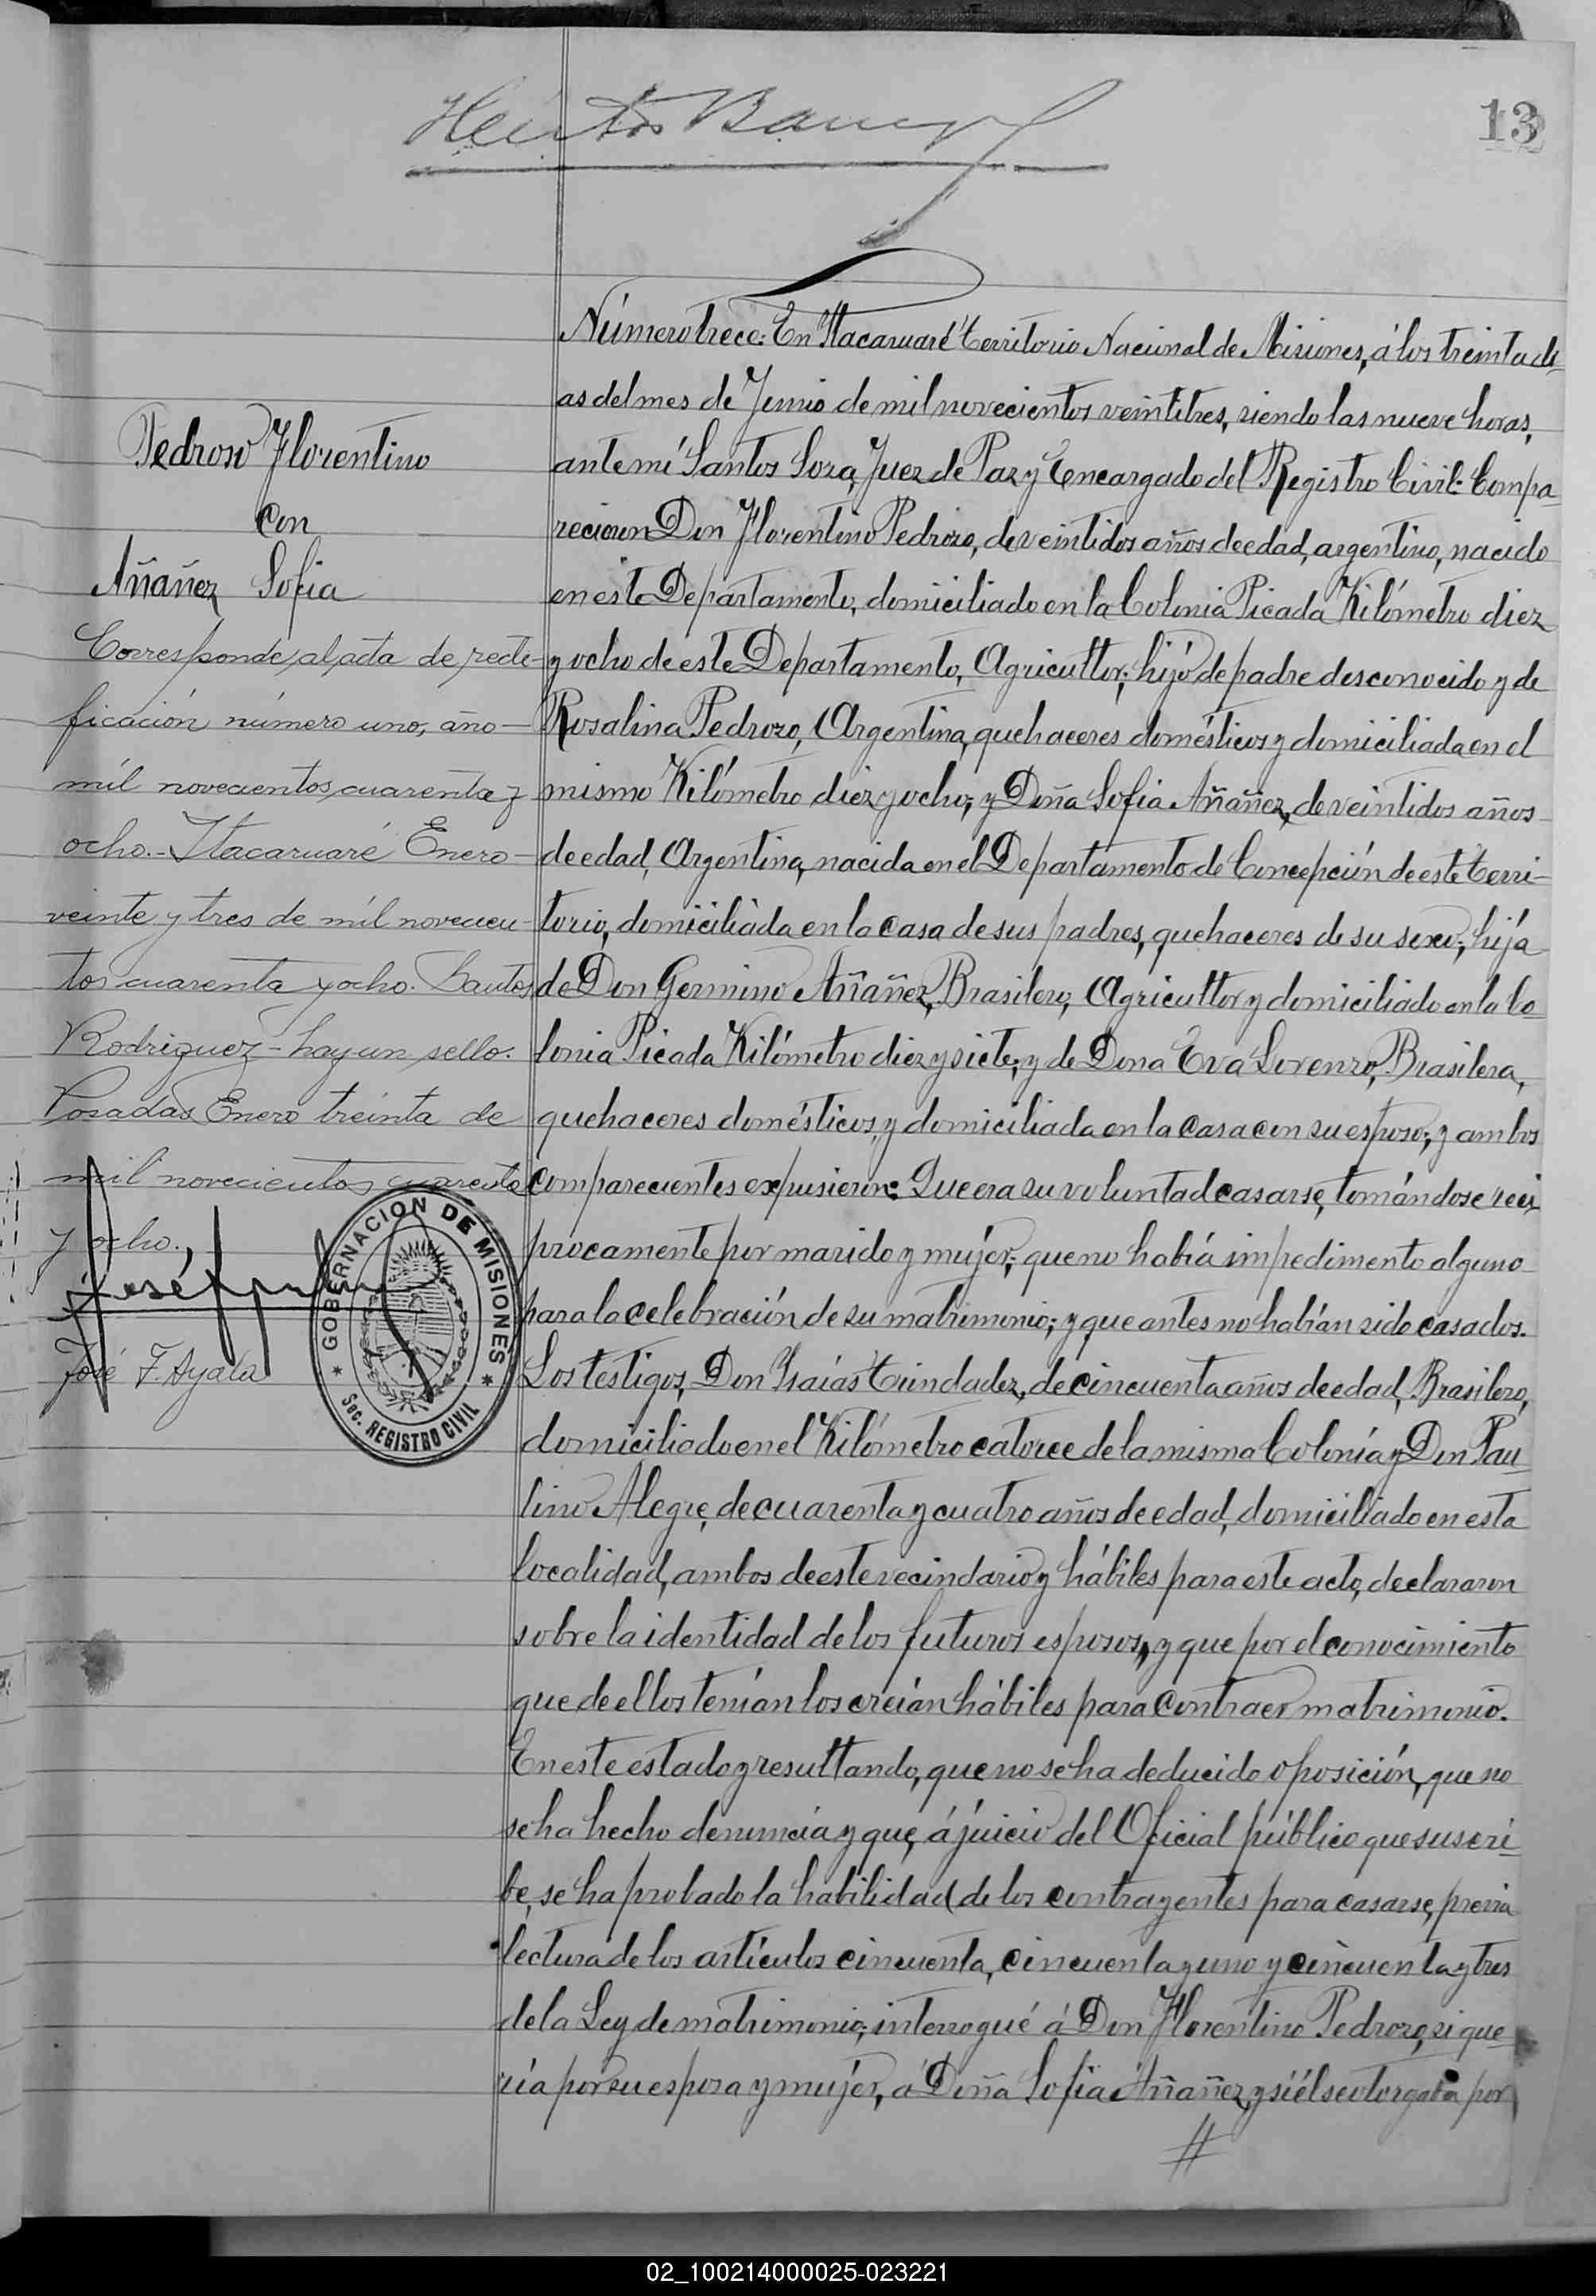 13
Pedroso Florentino
con
Añañez Sofia
Corresponde al acta de recti-
ficación número uno, año
mil novecientos cuarenta y
ocho.- Itacaruaré Enero
veinte y tres de mil novecien-
tos cuarenta y ocho. Santos
Rodriguez - hay un sello.
Posadas Enero treinta de
mil novecientos cuarenta
y ocho.
José F. Ayala
GOBERNACION DE MISIONES
Sec. REGISTRO CIVIL
Número trece: En "Itacaruaré" territorio Nacional de Misiones, á los treinta di-
as del mes de Junio de mil novecientos veintitres, siendo las nueve horas,
ante mí Santos Soza, Juez de Paz y Encargado del Registro Civil: Compa-
recieron Don Florentino Pedrozo, de veintidos años de edad, argentino, nacido
en este Departamento, domiciliado en la Colonia Picada Kilómetro diez
y ocho de este Departamento, Agricultor; hijo de padre desconocido y de
Rosalina Pedrozo, Argentina, quehaceres domésticos y domiciliada en el
mismo Kilómetro diez y ocho; y Doña Sofia Añañez, de veintidos años
de edad, Argentina, nacida en el Departamento de Concepción de este terri-
torio, domiciliada en la casa de sus padres, quehaceres de su sexo; hija
de Don Germino Añañez, Brasilero, Agricultor y domiciliado en la Co-
lonia Picada Kilómetro diez y siete; y de Dona Eva Lorenzo, Brasilera,
quehaceres domésticos, y domiciliada en la casa con su esposo; y ambos
comparecientes expusieron: Que era su voluntad casarse, tomándose reci-
procamente por marido y mujer; que no había impedimento alguno
para la celebración de su matrimonio; y que antes no habían sido casados.
Los testigos, Don Isaías Trindadez, de cincuenta años de edad, Brasilero,
domiciliado en el Kilómetro catorce de la misma Colonia y Don Pau-
lino Alegre, de cuarenta y cuatro años de edad, domiciliado en esta
localidad, ambos de este vecindario y hábiles para este acto, declararon
sobre la identidad de los futuros esposos, y que por el conocimiento
que de ellos tenían los creían hábiles para contraer matrimonio.
En este estado y resultando, que no se ha deducido oposición, que no
se ha hecho denuncia y que, á juicio del Oficial público que suscri-
be, se ha probado la habilidad de los contrayentes para casarse, previa
lectura de los artículos cincuenta, cincuenta y uno y cincuenta y tres
de la Ley de matrimonio; interrogué á Don Florentino Pedrozo, si que-
ría por su esposa y mujer, á Doña Sofia Añañez, y si él se otorgaba por
//
02_100214000025-023221